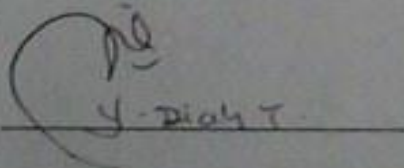 Y. Diah T.